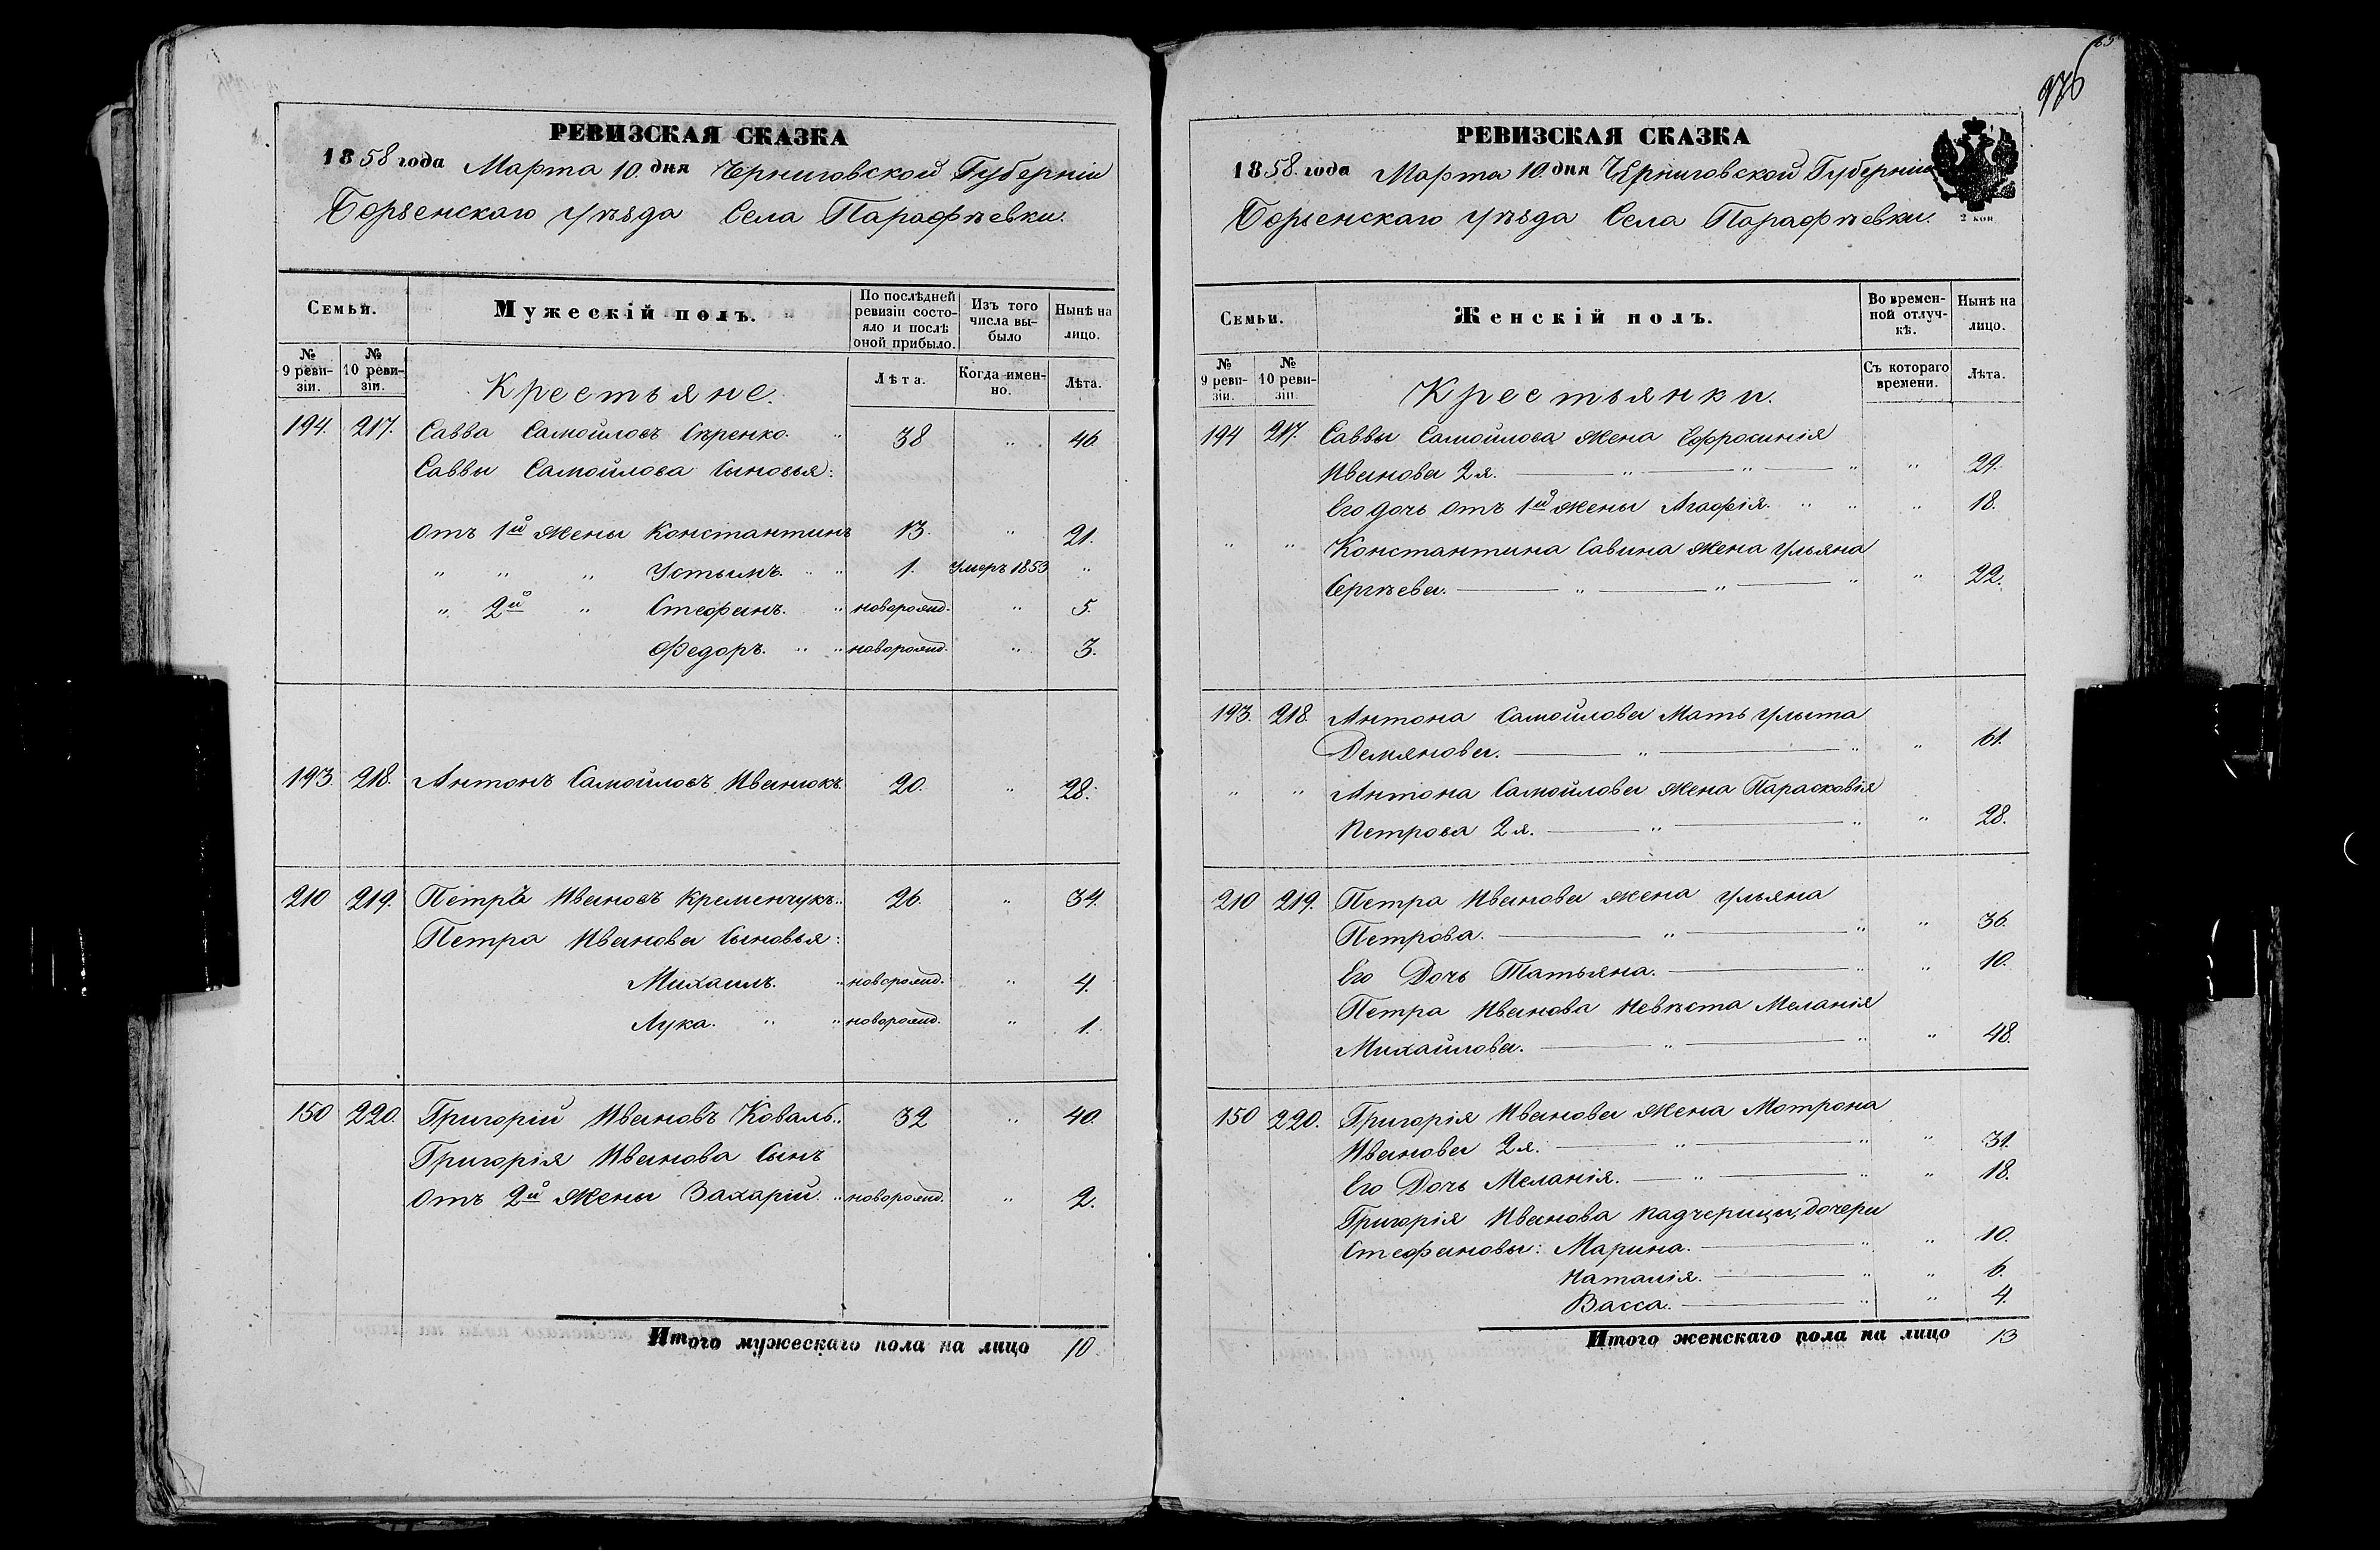 РЕВИЗСКАЯ СКАЗКА
1858 года Марта 10. дня Черниговской Губерніи
Борзенскаго уѣзда Села Парафѣевки.
Семьи.
Мужескій полъ.
По послѣдней ревизіи состояло и послѣ оной прибыло.
Изъ того числа выбыло
Нынѣ на лицо.
№ 9 ревизіи.
№ 10 ревизіи.
Крестьяне.
Лѣта.
Когда именно.
Лѣта.
194. 217. Савва Самойловъ Сѣренко. " 38 " 46
Саввы Самойлова Сыновья:
отъ 1й жены Константинъ 13. " 21.
" " " Устымъ. " " 1. Умеръ 1853 "
" 2й " Стефанъ. " новорожд. " 5.
Федоръ. " " новорожд. " 3.
193. 218. Антонъ Самойловъ Иванюкъ 20. " 28.
210 219. Петръ Ивановъ Кременчукъ. " 26. " 34.
Петра Иванова Сыновья:
Михаилъ. " новорожд. " 4.
Лука. " " новорожд. " 1.
150 220. Григорій Ивановъ Коваль. " 32 " 40.
Григорія Иванова Сынъ
отъ 2й жены Захарій. " новорожд. " 2.
Итого мужескаго пола на лицо 10.
976
РЕВИЗСКАЯ СКАЗКА
1858. года Марта 10. дня Черниговской Губерніи
Борзенскаго уѣзда Села Парафѣевки.
2 коп
Семьи.
Женскій полъ.
Во временной отлучкѣ.
Нынѣ на лицо.
№ 9 ревизіи.
№ 10 ревизіи.
Крестьянки.
Съ котораго времени.
Лѣта.
194 217. Саввы Самойлова жена Ефросинія
Иванова 2я. " " " " 29.
Его дочь отъ 1й жены Агафія. " " " 18.
" " Константина Савина жена Ульяна
Сергѣева. " " " " 22.
193. 218. Антона Самойлова Мать Улыта
Демянова. " " " 61.
" " Антона Самойлова жена Парасковія
Петрова 2я. " " " 28.
210 219. Петра Иванова жена Ульяна
Петрова. " " " 36.
Его Дочь Татьяна. " " 10.
Петра Иванова Невѣста Меланія
Михайлова. " " " 48.
150 220. Григорія Иванова жена Мотрона
Иванова 2я. " " " 31.
Его Дочь Меланія. " " " 18.
Григорія Иванова падчерицы, дочери
Стефановы: Марина. " " 10.
Наталія. " " 6.
Васса. " " 4.
Итого женскаго пола на лицо 13